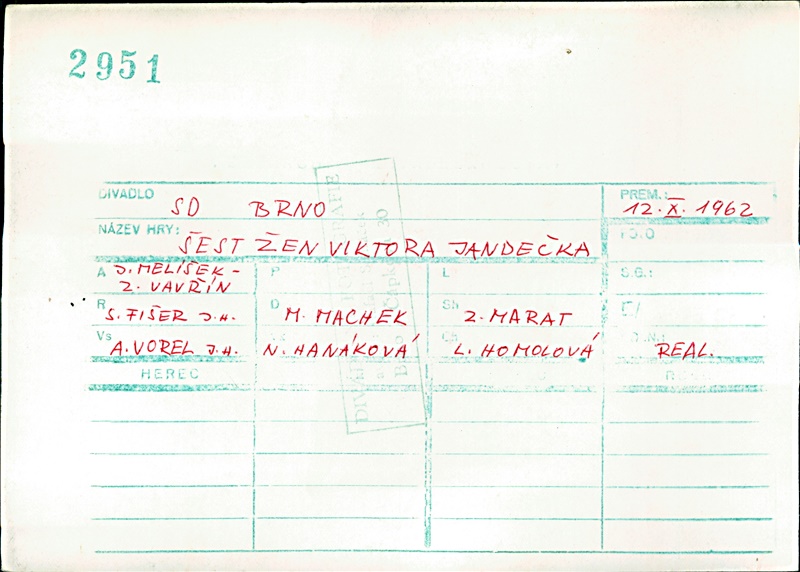 2951
DIVADLO SD BRNO PREM.: 12.X.1962
NÁZEV HRY: ŠEST ŽEN VIKTORA JANDEČKA
A J. MELÍŠEK - Z. VAVŘÍN P L S.G.:
R S. FIŠER J.H. M. MACHEK Sh Z. MARAT
Vs A. VOREL J.H. N. HANÁKOVÁ L. HOMOLOVÁ REAL.
HEREC